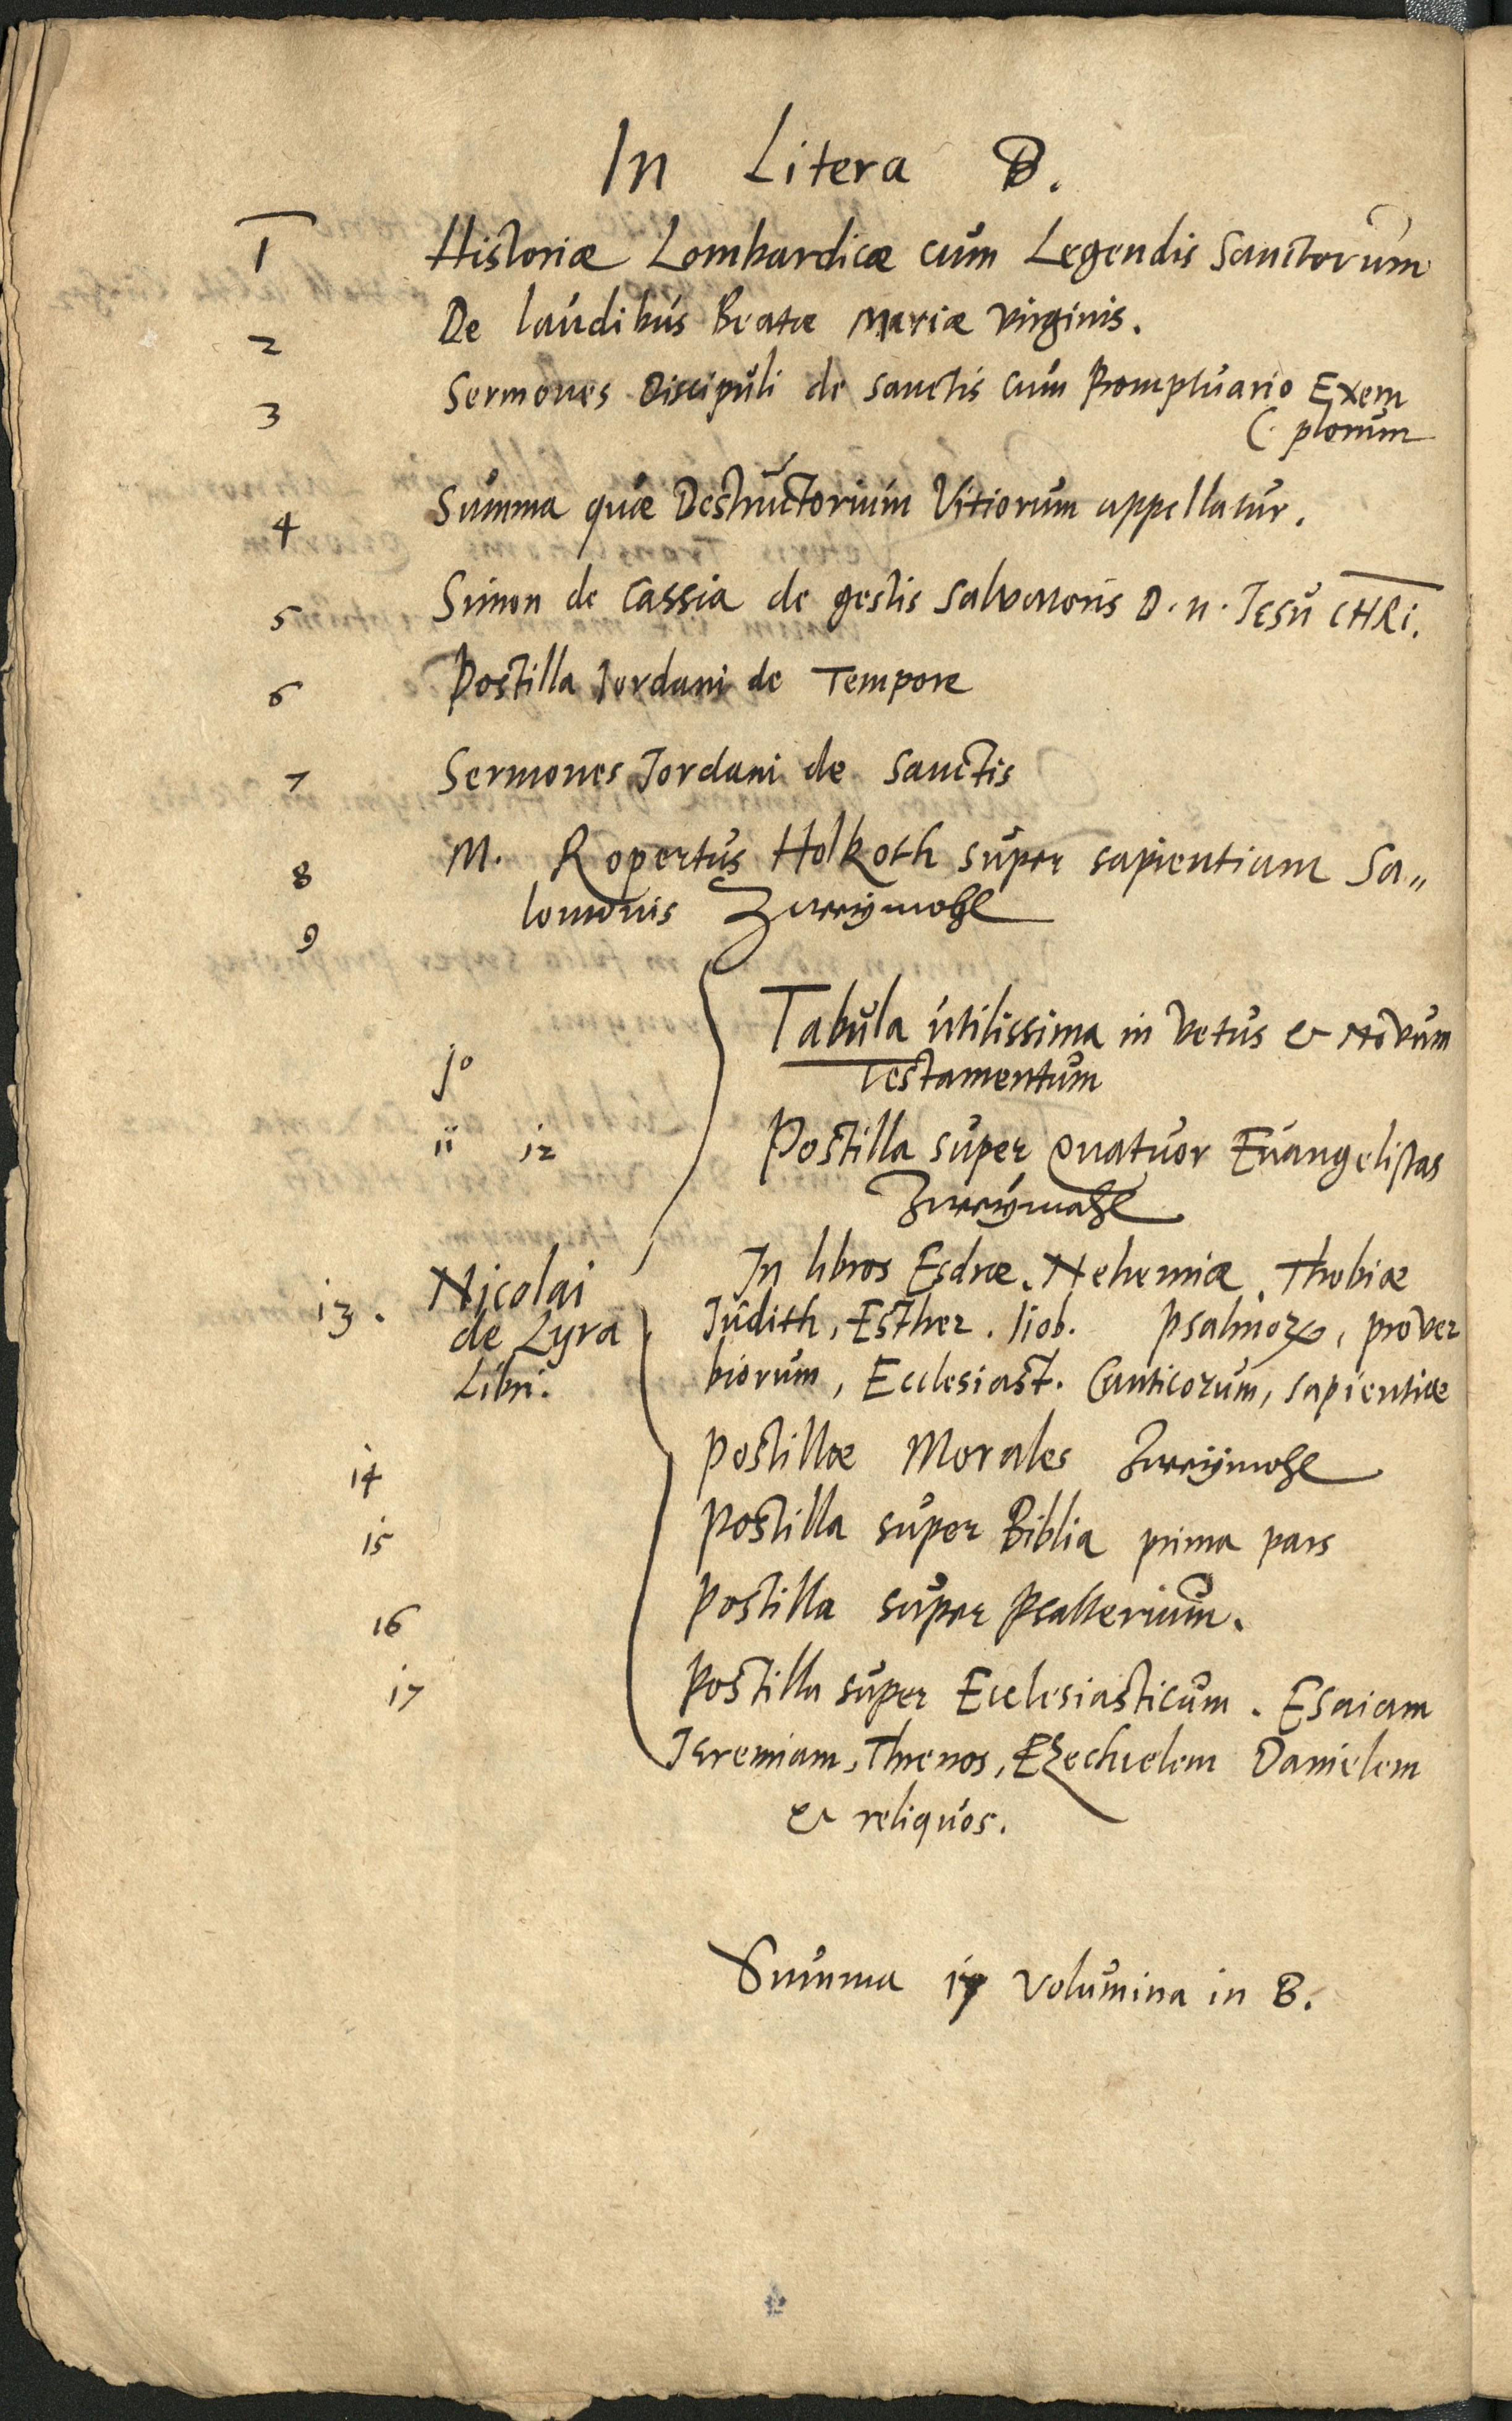 In Litera B.
1 Historiæ Lombardicæ cum Legendis Sanctorum
2 De laudibus Beatæ Mariæ virginis.
3 Sermones Discipuli de sanctis cum Promptuario Exem
plorum
4 Summa quæ Destructorium Vitiorum appellatur.
5 Simon de Cassia de gestis salvatoris D. n. Jesu CHRi.
6 Postilla Jordani de Tempore
7 Sermones Jordani de Sanctis
8 M. Ropertus Holkoth super sapientiam Sa„
9 lomonis Zweymohl
10 Tabula utilissima in vetus & Novum
Testamentum
11 12 Postilla super Quatuor Euangelistas
Zweymahl
In libros Esdræ, Nehemiæ, Thobiæ
13. Nicolai Judith, Esther. Iiob. Psalmorꝝ, prover
de Lyra biorum, Ecclesiast. Canticorum, sapientiæ
Libri.
14 Postillæ Morales Zweymohl
15 Postilla super Biblia prima pars
16 Postilla super Psalterium.
17 Postilla super Ecclesiasticum. Esaiam
Jeremiam, Threnos, Ezechielem Danielem
& reliquos.
Summa 17 volumina in B.